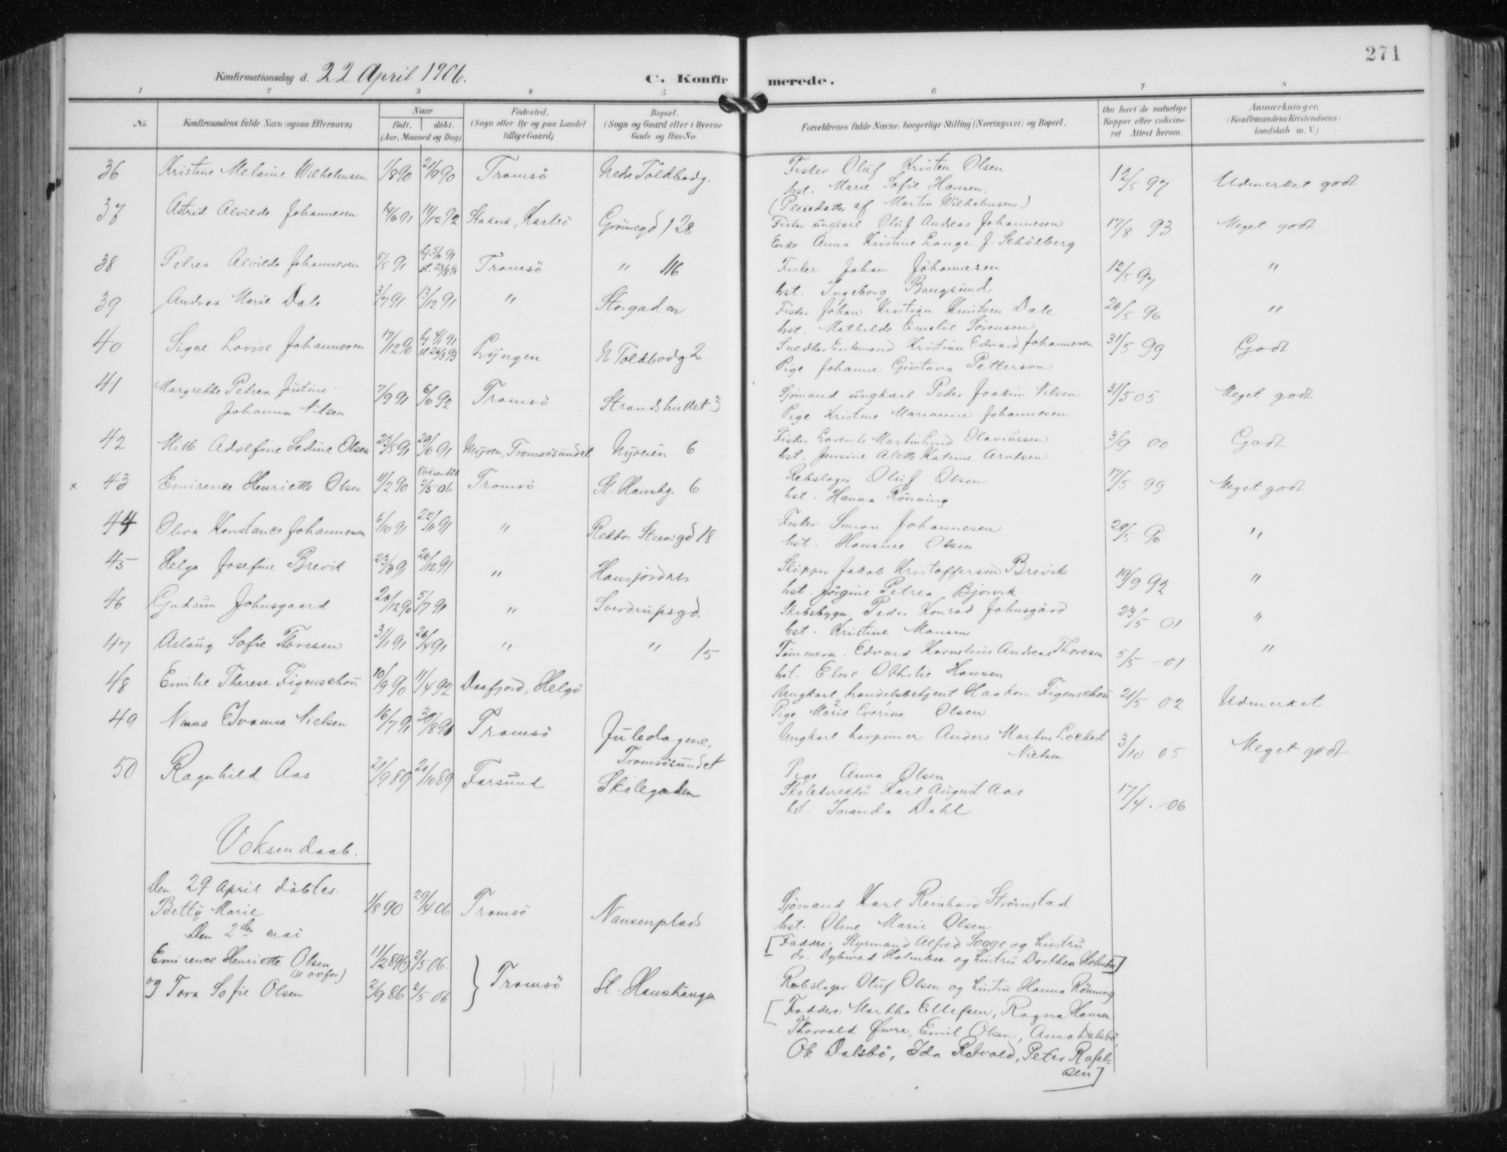 271
Konfirmationsdag d. 22 April 1906.
C. Konfirmerede.
1 2 3 4 5 6 7 8
No. Konfirmandens fulde Navn (ogsaa Efternavn) Naar Født. døbt. (Aar, Maaned og Dag) Fødested. (Sogn eller By og paa Landet tillige Gaard) Bopæl. (Sogn og Gaard eller i Byerne Gade og Hus-No. Forældrenes fulde Navne, borgerlige Stilling (Næringsvei) og Bopæl. Om havt de naturlige Kopper eller vaccineret Attest herom. Anmærkninger. (Konfirmandens Kristendomskundskab m. V.)
36 Kristine Melvine Wilhelmsen 1/8 90 21/9 90 Tromsö Nedre Toldbodg. Fisker Oluf Kristen Olsen 12/5 97 Udmerket godt
hst. Marie Sofie Hansen.
(Pleiedatter af Martin Wilhelmsen)
37 Astrid Alvilde Johannesen Karlsö Grönnegd 128 Fisker ungkarl Oluf Andreas Johannesen 17/8 93 Meget godt
Enke Anna Kristine Lange f. Schölberg
38 Petrea Alvilde Johannesen 5/5 91 Tromsö " 116 Fisker Johan Johannesen 12/5 97 "
hst. Ingeborg Bangsund
39 Andrea Marie Dale 3/7 91 Tromsö " Storgaden Fisker Johan Kristian Knutsen Dale 20/5 96 "
hst. Mathilde Emelie Sörensen
40 Signe Lovise Johannesen 17/12 90 Lyngen N Toldbodg 2 Snedker Enkemand Kristian Edvard Johannesen 31/5 99 Godt
Pige Johanne Gustava Petterson
41 Margrethe Petrea Justine 7/9 91 6/6 92 Tromsö Strandskillet 3 Sjömand ungkarl Peder Joakim Nilsen 31/5 05 Meget godt
Johanna Nilsen Pige Kristine Marianne Johannesen
42 Adolfine Sedine Olsen 23/5 91 20/6 91 Tromsösundet Nyveien 6 Fisker Lorents Martin Olavussen 3/9 00 Godt
hst. Jensine Alette Katrine Arntsen
x 43 Emirence Henriette Olsen 11/2 90 Voksendöbt 2/5 06 Tromsö St. Hanshg. 6 Rebslager Oluf Olsen 17/5 99 Meget godt
hst. Hanna Rönning
44 Oliva Konstance Johannesen 6/10 91 " Rektor Steensgd 18 Fisker Simon Johannesen "
hst. Hansine Olsen
45 Helga Josefine Brevik 26/12 91 " Hansjordnes Skipper Jakob Kristoffersen Brevik 19/9 92 "
hst. Jörgine Petrea Bjørvik
46 Gudrun Johnsgaard 20/12 90 5/7 91 " Sverdrupsgd. Skibsbygm. Peder Konrad Johnsgård 23/5 01 "
hst. Kristine Mansen
47 Aslaug Sofie Thoresen 3/1 91 26/4 91 " " 15 Tömmerm. Edvard Kornelius Andreas Thoresen 5/5 - 01 "
hst. Elise Othilie Hansen
48 Emilie Therese Figenschou 10/9 90 11/4 92 Daafjord, Helgö Ungkarl handelsbetjent Haakon Figenschou 21/5 02 Udmerket
Pige Marie Everina Olsen
49 Nanna Ivanna Nielsen 16/7 91 30/8 91 Tromsö Juledagene, Ungkarl harpuner Anders Martin Lockert 3/10 05 Meget godt
Tromsösundet Nielsen
Pige Anna Olsen
50 Ragnhild Aas 21/9 89 20/10 89 Farsund Skolegaden Skolebestbr Karl August Aas 17/4 - 06
hst. Inanda Dahl
Voksendaab.
Den 29 April döbtes.
Betty Marie 1/8 90 29/4 06 Tromsö Nansenplads Sjömand Karl Reinhard Strömstad
hst. Oline Marie Olsen
Den 2den mai [Faddre: Styrmand Alfred Sogge og hustru
dr. Holmboe og hustru Dorthea Holmboe]
Emirence Henriette Olsen (se ovfor) 11/2 89/90 2/5 06. Tromsö St. Hanshaugen Rebslager Oluf Olsen og hustru Hanna Rönning
og Tora Sofie Olsen 2/9 86 2/5 06 [Faddere: Martha Ellefsen, Ragna Hansen
Thorvald Øwre, Emil Olsen, Anna Dalsbö,
Ole Dalsbö, Ida Rotvold, Peter Rafaelsen]